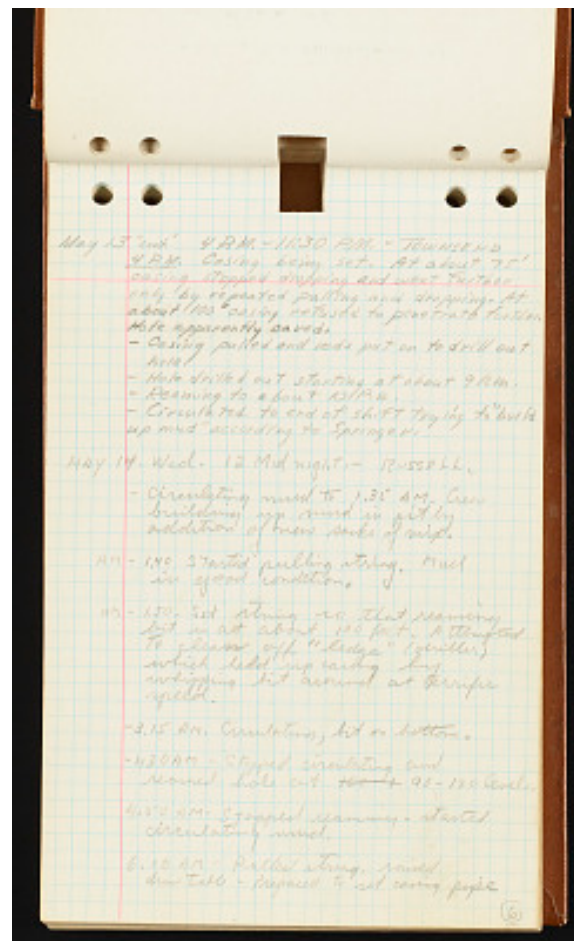 May 13 4 P.M. - 11:30 P.M. - TOWNSEND
4 P.M. Casing being set. At about 75'
casing stopped dropping and went further
only by repeated pulling and dropping. At
about 100' casing refused to penetrate further.
Hole apparently caved.
- Casing pulled and rods put on to drill out
hole.
- Hole drilled out starting at about 9 P.M.
- Reaming to about P.M.
- Circulated to end of shift trying to "build
up mud" according to Springer.
MAY 14. Wed. 12 Midnight - RUSSELL.
- Circulating mud to 1.35 AM. Crew
building up mud in pit by
addition of new sacks of
AM - 1.40 Started pulling string. Mud
in good condition.
AM - 1.50. Set string so that reaming
bit is at about 100 feet. Attempted
to clean off "ledge"
which held up casing by
whipping bit around at terrific
speed.
- 3.15 AM. Circulating, bit on bottom.
- 4.30 AM - Stopped circulating and
reamed hole out 90 - 120 level.
4.50 AM - Stopped reaming - started
circulating mud.
6.30 AM - Pulled string, raised
table - Prepared to set casing pipe
6